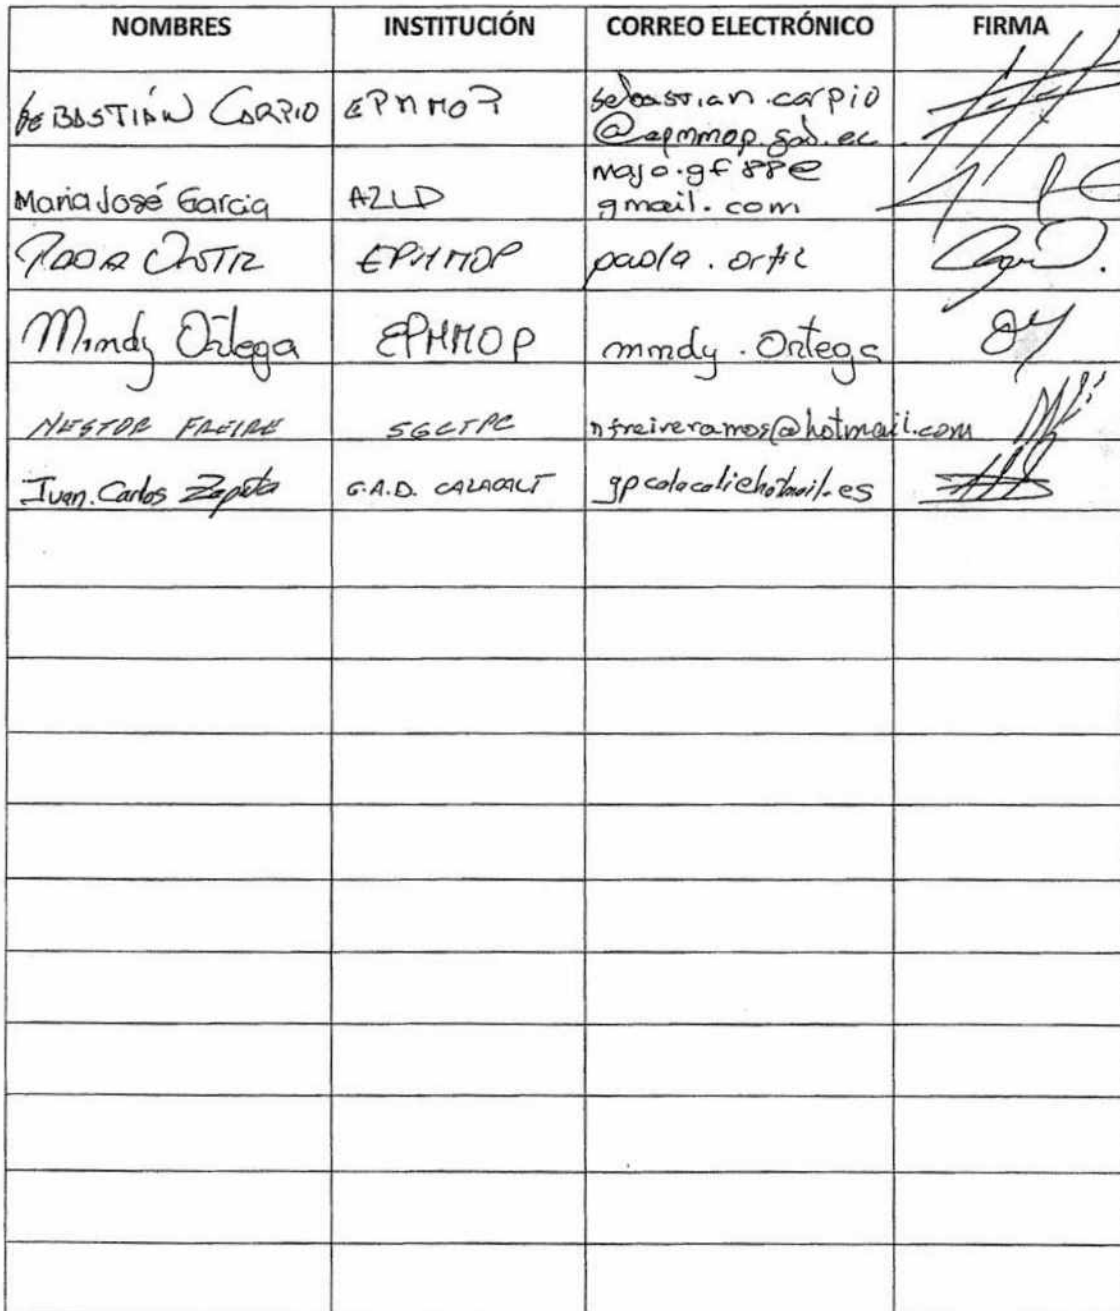 NOMBRES INSTITUCIÓN CORREO ELECTRÓNICO FIRMA
SEBASTIÁN CARPIO EPMMOP sebastian.carpio
@epmmop.gob.ec
Maria José Garcia AZLD majo.gf88@
gmail.com
PAOLA ORTIZ EPMMOP paola.ortiz
Mindy Ortega EPMMOP mindy.Ortega
NESTOR FREIRE SGCTPC nfreireramos@hotmail.com
Juan.Carlos Zapata G.A.D. CALACALI gpcalacali@hotmail.es